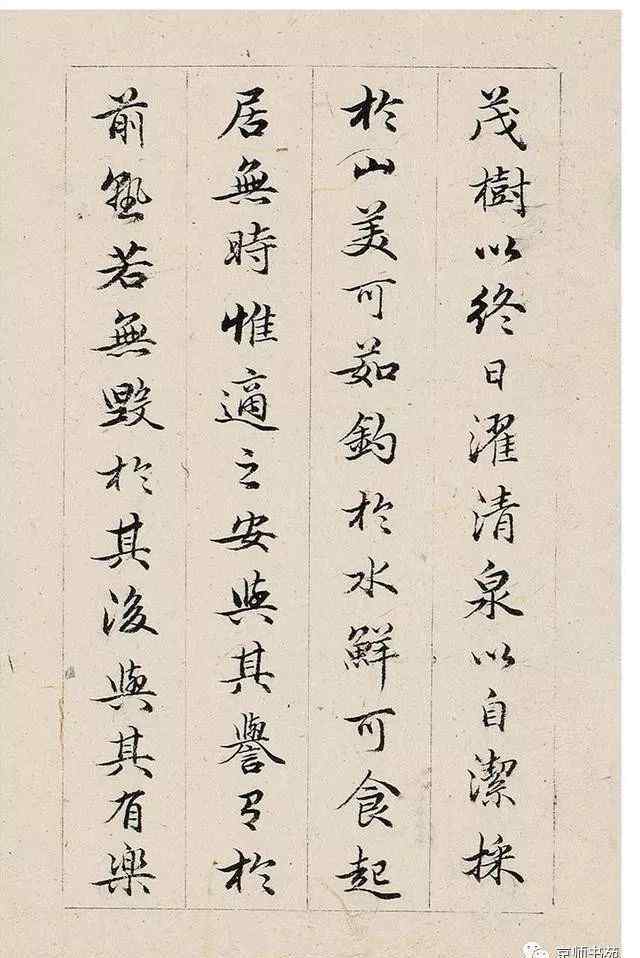 茂樹以終日濯清泉以自潔採
於山美可茹釣於水鮮可食起
居無時惟適之安與其譽有於
前孰若無毀於其後與其有樂
京师书苑